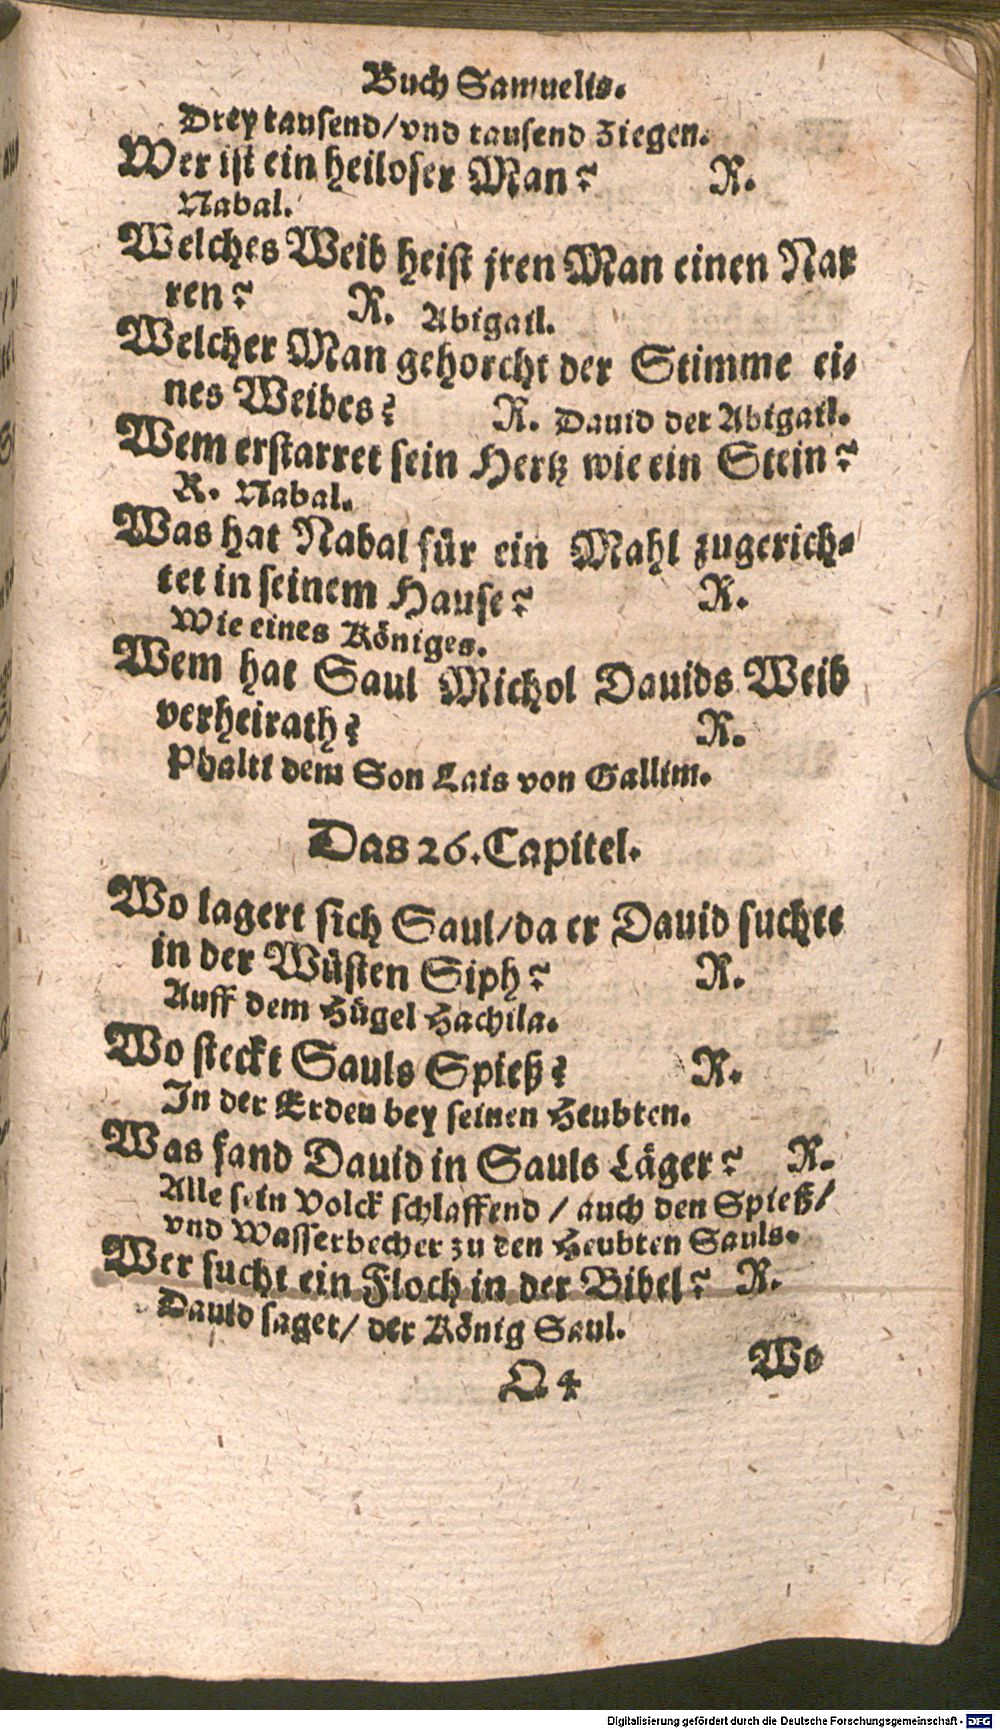 Buch Samuelis.
Drey tausend/vnd tausend Ziegen.
Wer ist ein heiloser Man? R.
Nabal.
Welches Weib heist jren Man einen Nar
ren? R. Abigail.
Welcher Man gehorcht der Stimme ei-
nes Weibes? R. Dauid der Abigail.
Wem erstarret sein Hertz wie ein Stein?
R. Nabal.
Was hat Nabal für ein Mahl zugerich-
tet in seinem Hause? R.
Wie eines Königes.
Wem hat Saul Michol Dauids Weib
verheirath? R.
Phalti dem Son Lais von Gallim.
Das 26. Capitel.
Wo lagert sich Saul/da er Dauid suchte
in der Wüsten Siph? R.
Auff dem Hügel Hachila.
Wo steckt Sauls Spieß? R.
In der Erden bey seinen Heubten.
Was fand Dauid in Sauls Läger? R.
Alle sein Volck schlaffend / auch den Spieß/
vnd Wasserbecher zu den Heubten Sauls.
Wer sucht ein Floch in der Bibel? R.
Dauid saget/ der König Saul.
Q 4 Wo
Digitalisierung gefördert durch die Deutsche Forschungsgemeinschaft - DFG